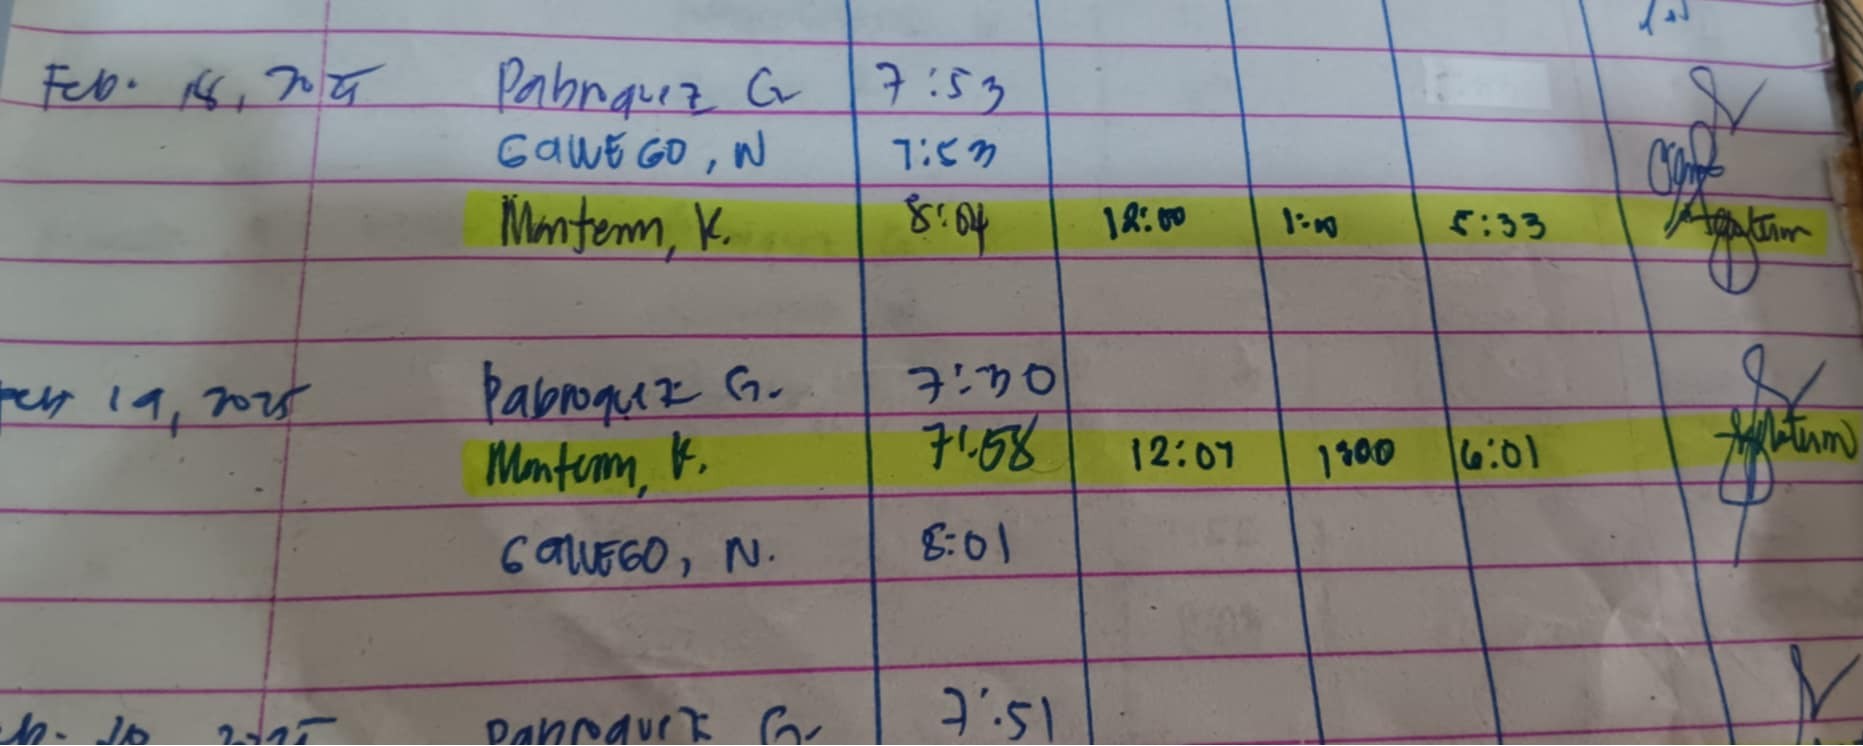 Feb. 18, 2025 Pabroquez G 7:53
GALLEGO, N 7:53
Monterm, K. 8:04 12:00 1:00 5:33
Feb 19, 2025 Pabroquez G. 7:30
Monterm, K. 7:58 12:07 1:00 6:01
GALLEGO, N. 8:01
Feb. 20, 2025 Pabroquez G. 7:51